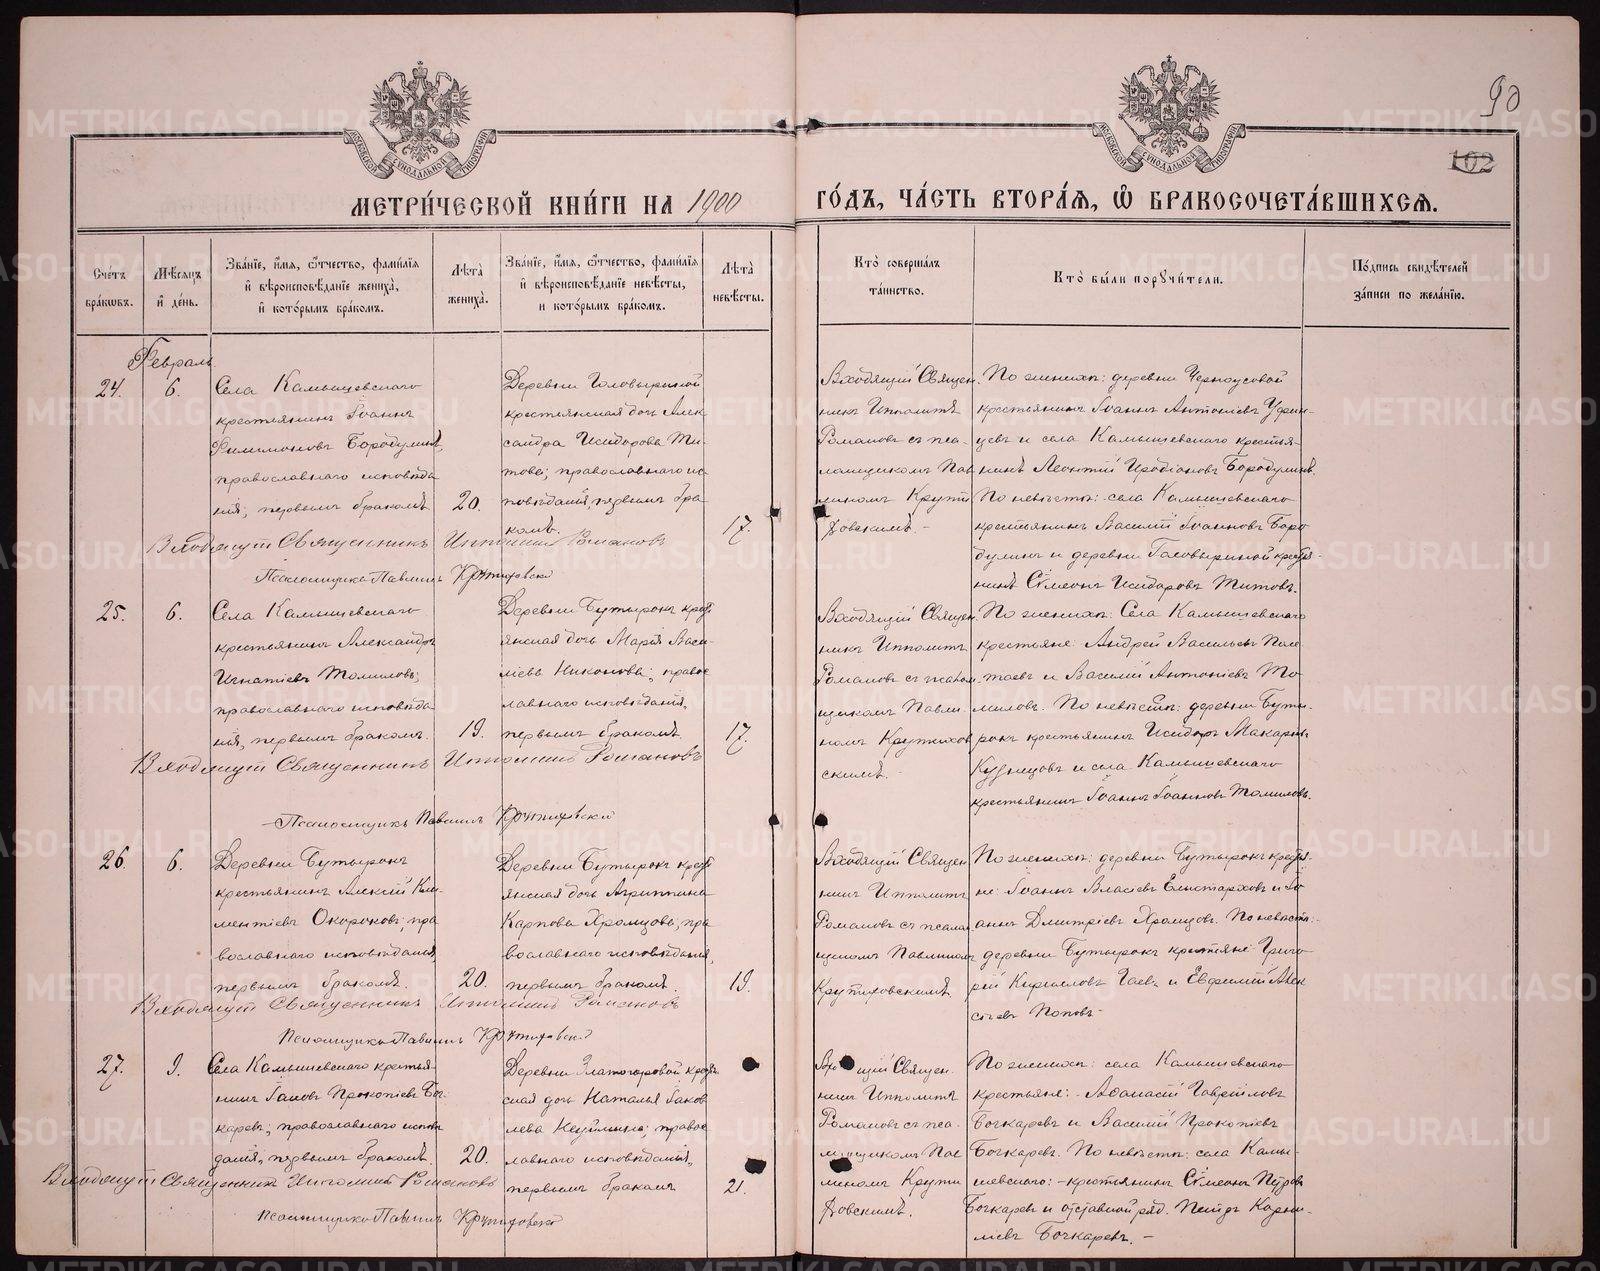 90
102
МЕТРИ́ЧЕСКОЙ КНИ́ГИ НА 1900 ГО́ДЪ, ЧА́СТЬ ВТОРА́Я, Ѡ҆ БРАКОСОЧЕТА́ВШИХСЯ.
Сче́тъ бра́ковъ.
Мѣ́сяцъ и҆ де́нь.
Зва́нїе, и҆́мя, ѻ҆́тчество, фами́лїя
и҆ вѣроисповѣ́данїе жениха̀,
и҆ кото́рымъ бра́комъ.
Лѣта̀ жениха̀.
Зва́нїе, и҆́мя, ѻ҆́тчество, фами́лїя
и҆ вѣроисповѣ́данїе невѣ́сты,
и҆ кото́рымъ бра́комъ.
Лѣта̀ невѣ́сты.
Кто̀ соверша́лъ та́инство.
Кто̀ бы́ли порꙋчи́тели.
По́дпись свидѣ́телей за́писи по жела́нїю.
Февраль
24.
6.
Села Камышевскаго
крестьянинъ Іоаннъ
Филимоновъ Бородулинъ,
православнаго исповѣда
нія, первымъ бракомъ.
20.
Деревни Головыриной
крестьянская дочь Алек
сандра Исидорова Ти-
това; православнаго ис
повѣданія, первымъ бра
комъ.
17.
Входящій Священ.
никъ Ипполитъ
Романовъ съ пса-
ломщикомъ Пав
линомъ Крути
ховскимъ. -
По женихѣ: деревни Черноусовой
крестьянинъ Іоаннъ Антоніевъ Удин-
цевъ и села Камышевскаго крестья-
нинъ Леонтій Иродіоновъ Бородулинъ.
По невѣстѣ: села Камышевскаго
крестьянинъ Василій Іоанновъ Боро
дулинъ и деревни Головыриной крестья-
нинъ Сѵмеонъ Исидоровъ Титовъ.
Входящій Священникъ Ипполитъ Романовъ
Псаломщикъ Павлинъ Крутиховскій
25.
6.
Села Камышевскаго
крестьянинъ Александръ
Игнатіевъ Томиловъ;
православнаго исповѣда
нія, первымъ бракомъ.
19.
Деревни Бутырокъ кресть
янская дочь Марія Васи-
ліева Никонова; правос
лавнаго исповѣданія,
первымъ бракомъ.
17.
Входящій Священ.
никъ Ипполитъ
Романовъ съ псалом-
щикомъ Павли-
номъ Крутихов
скимъ. -
По женихѣ: Села Камышевскаго
крестьяне: Андрей Васильевъ Пол
таевъ и Василій Антоніевъ То
миловъ. По невѣстѣ: деревни Буты-
рокъ крестьянинъ Исидоръ Макаръ
Кузнецовъ и села Камышевскаго
крестьянинъ Іоаннъ Іоанновъ Томиловъ.
Входящій Священникъ Ипполитъ Романовъ
Псаломщикъ Павлинъ Крутиховскій
26.
6.
Деревни Бутырокъ
крестьянинъ Алексій Кли
ментіевъ Окороковъ; пра
вославнаго исповѣданія,
первымъ бракомъ.
20.
Деревни Бутырокъ кресть
янская дочь Агриппина
Карпова Храмцова; пра
вославнаго исповѣданія,
первымъ бракомъ.
19.
Входящій Священ
никъ Ипполитъ
Романовъ съ псалом
щикомъ Павлиномъ
Крутиховскимъ.
По женихѣ: деревни Бутырокъ крестья-
не: Іоаннъ Власіевъ Елистарховъ и Іо
аннъ Димитріевъ Храмцовъ. По невѣстѣ:
деревни Бутырокъ крестьяне: Григо
рій Кирилловъ Гаевъ и Евфимій Алек
сѣевъ Поповъ.
Входящій Священникъ Ипполитъ Романовъ
Псаломщикъ Павлинъ Крутиховскій
27.
9.
Села Камышевскаго крестья-
нинъ Іаковъ Прокопіевъ Боч-
каревъ; православнаго исповѣ
данія, первымъ бракомъ.
20.
Деревни Златогоровой кресть
ская дочь Наталья Іаков
лева правос
лавнаго исповѣданія,
первымъ бракомъ
21.
Входящій Священ.
никъ Ипполитъ
Романовъ съ пса-
ломщикомъ Пав
линомъ Крути
ховскимъ.
По женихѣ: села Камышевскаго
крестьяне: - Аѳанасій Гавріиловъ
Бочкаревъ и Василій Прокопіевъ
Бочкаревъ. По невѣстѣ: села Камы-
шевскаго: - крестьянинъ Сѵмеонъ Петровъ
Бочкаревъ и отставной ряд. Петръ Корни-
ліевъ Бочкаревъ. -
Входящій Священникъ Ипполитъ Романовъ
Псаломщикъ Павлинъ Крутиховскій
METRIKI.GASO-URAL.RU